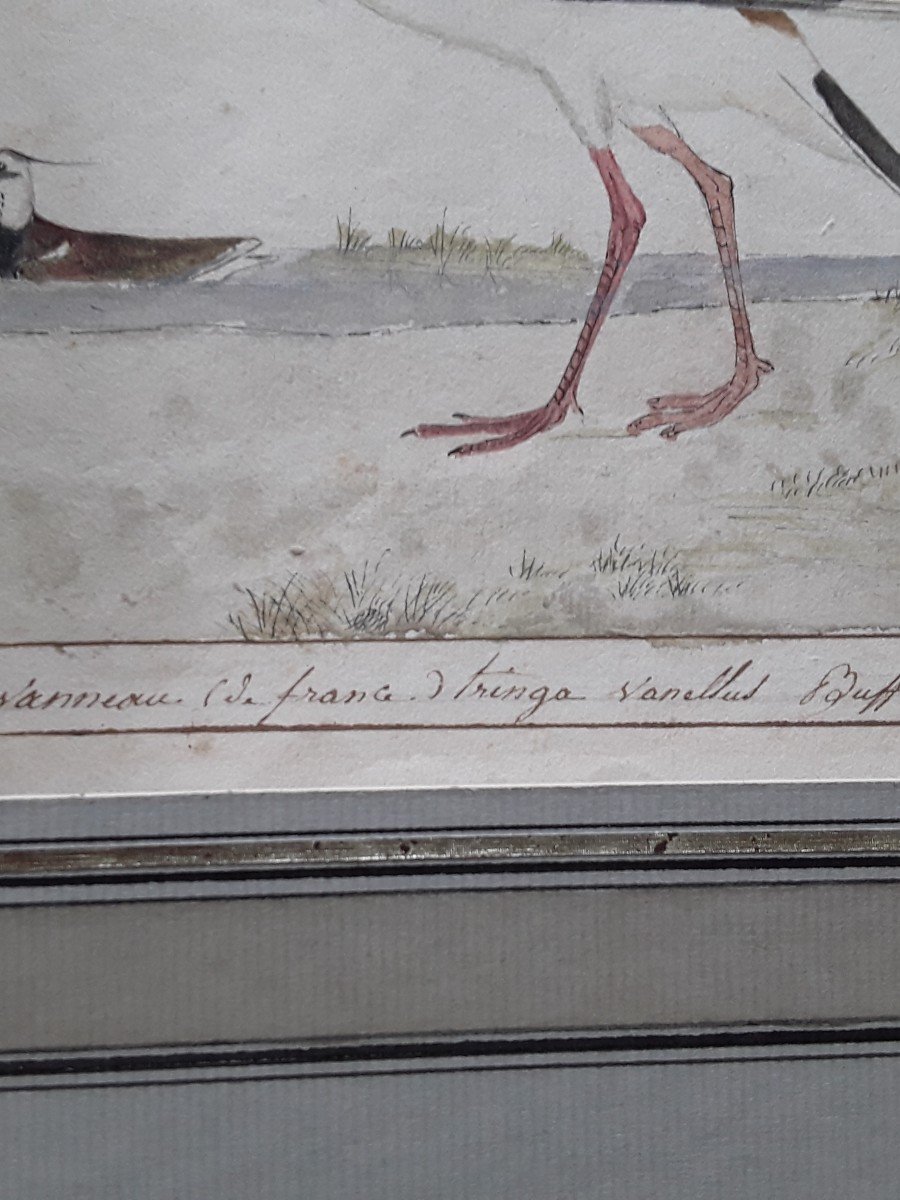 vanneau. (de france.) tringa vanellus Buff